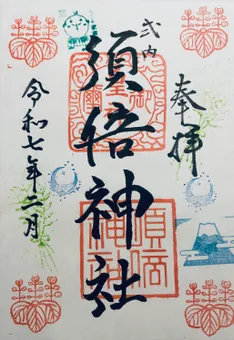 奉拝
式内
須倍神社
令和七年二月
須倍神社